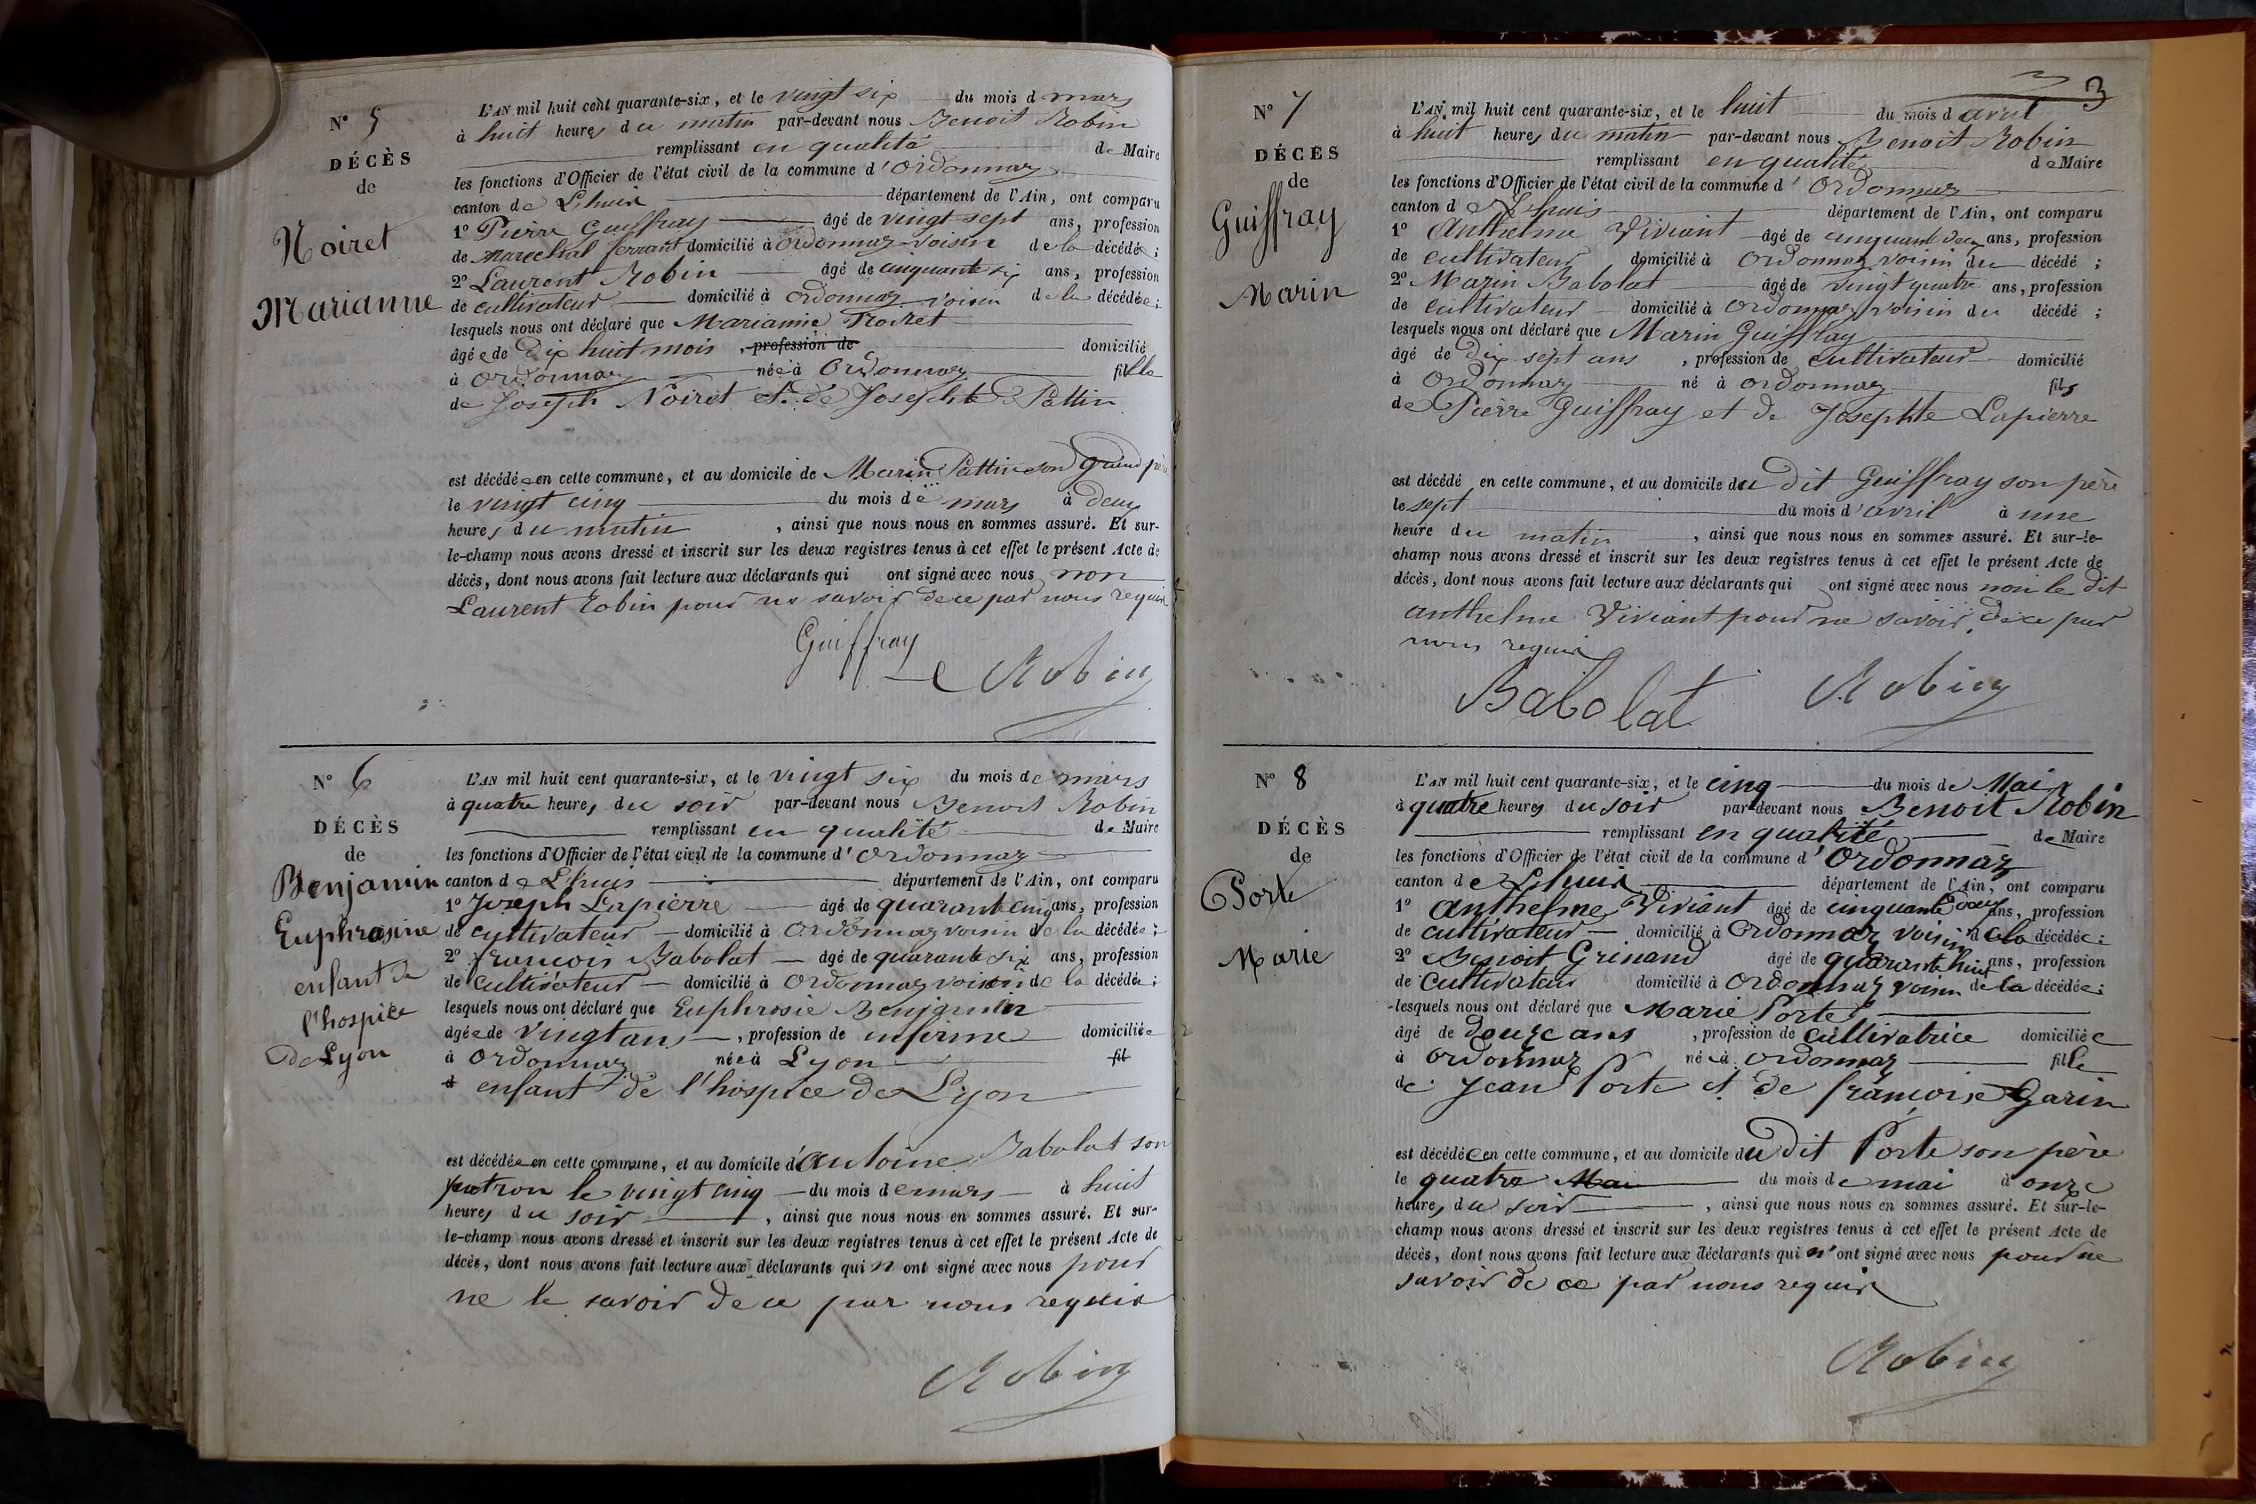 N° 5
DÉCÈS
de
Noiret
Marianne
L'AN mil huit cent quarante-six, et le vingt six du mois d mars
à huit heures du matin par-devant nous Benoit Robin
remplissant en qualité de Maire
les fonctions d'Officier de l'état civil de la commune d'Ordonnaz
canton de Lhuis département de l'Ain, ont comparu
1° Pierre Guiffray âgé de vingt sept ans, profession
de marechal ferrant domicilié à Ordonnaz voisin de la décédée ;
2° Laurent Robin âgé de cinquante six ans, profession
de cultivateur domicilié à ordonnaz voisin de la décédée ;
lesquels nous ont déclaré que Marianne Noiret
âgée de dix huit mois , profession de domicilié
à Ordonnaz née à Ordonnaz fille
de Joseph Noiret et de Josephte Pattin
est décédée en cette commune, et au domicile de Marin Pattin son grand père
le vingt cinq du mois de mars à deux
heures du matin , ainsi que nous nous en sommes assuré. Et sur-
le-champ nous avons dressé et inscrit sur les deux registres tenus à cet effet le présent Acte de
décès, dont nous avons fait lecture aux déclarants qui ont signé avec nous non
Laurent Robin pour ne savoir de ce par nous requis
Guiffray
Robin
N° 6
DÉCÈS
de
Benjamin
Euphrasine
enfant de
l'hospice
de Lyon
L'AN mil huit cent quarante-six, et le vingt six du mois de mars
à quatre heures du soir par-devant nous Benoit Robin
remplissant en qualité de Maire
les fonctions d'Officier de l'état civil de la commune d'Ordonnaz
canton de Lhuis département de l'Ain, ont comparu
1° Joseph Lapierre âgé de quarante cinq ans, profession
de cultivateur domicilié à Ordonnaz voisin de la décédée ;
2° francois Babolat âgé de quarante six ans, profession
de cultivateur domicilié à Ordonnaz voisin de la décédée ;
lesquels nous ont déclaré que Euphrosie Benjamin
âgée de vingt ans , profession de infirme domiciliée
à Ordonnaz née à Lyon fil
enfant de l'hospice de Lyon
est décédée en cette commune, et au domicile d'antoine Babolat son
patron le vingt cinq du mois de mars à huit
heures du soir , ainsi que nous nous en sommes assuré. Et sur-
le-champ nous avons dressé et inscrit sur les deux registres tenus à cet effet le présent Acte de
décès, dont nous avons fait lecture aux déclarants qui n ont signé avec nous pour
ne le savoir de ce par nous requis
Robin
3
N° 7
DÉCÈS
de
Guiffray
Marin
L'AN mil huit cent quarante-six, et le huit du mois d avril
à huit heures du matin par-devant nous Benoit Robin
remplissant en qualité de Maire
les fonctions d'Officier de l'état civil de la commune d'Ordonnaz
canton de Lhuis département de l'Ain, ont comparu
1° Anthelme Viviant âgé de cinquante deux ans, profession
de cultivateur domicilié à Ordonnaz voisin du décédé ;
2° Marin Babolat âgé de vingt quatre ans, profession
de cultivateur domicilié à Ordonnaz voisin du décédé ;
lesquels nous ont déclaré que Marin Guiffray
âgé de dix sept ans , profession de cultivateur domicilié
à Ordonnaz né à ordonnaz fils
de Pierre Guiffray et de Josephte Lapierre
est décédé en cette commune, et au domicile du dit Guiffray son père
le sept du mois d'avril à une
heure du matin , ainsi que nous nous en sommes assuré. Et sur-le-
champ nous avons dressé et inscrit sur les deux registres tenus à cet effet le présent Acte de
décès, dont nous avons fait lecture aux déclarants qui ont signé avec nous non le dit
anthelme Viviant pour ne savoir de ce par
nous requis
Babolat
Robin
N° 8
DÉCÈS
de
Porte
Marie
L'AN mil huit cent quarante-six, et le cinq du mois de Mai
à quatre heures du soir par-devant nous Benoit Robin
remplissant en qualité de Maire
les fonctions d'Officier de l'état civil de la commune d'Ordonnaz
canton de Lhuis département de l'Ain, ont comparu
1° anthelme Viviant âgé de cinquante deux ans, profession
de cultivateur domicilié à Ordonnaz voisin de la décédée ;
2° Benoit Grinand âgé de quarante huit ans, profession
de cultivateur domicilié à Ordonnaz voisin de la décédée ;
lesquels nous ont déclaré que Marie Porte
âgé de douze ans , profession de cultivatrice domiciliée
à Ordonnaz née à ordonnaz fille
de Jean Porte et de françoise Garin
est décédée en cette commune, et au domicile du dit Porte son père
le quatre Mai du mois de mai à onze
heures du soir , ainsi que nous nous en sommes assuré. Et sur-le-
champ nous avons dressé et inscrit sur les deux registres tenus à cet effet le présent Acte de
décès, dont nous avons fait lecture aux déclarants qui n'ont signé avec nous pour ne
savoir de ce par nous requis
Robin